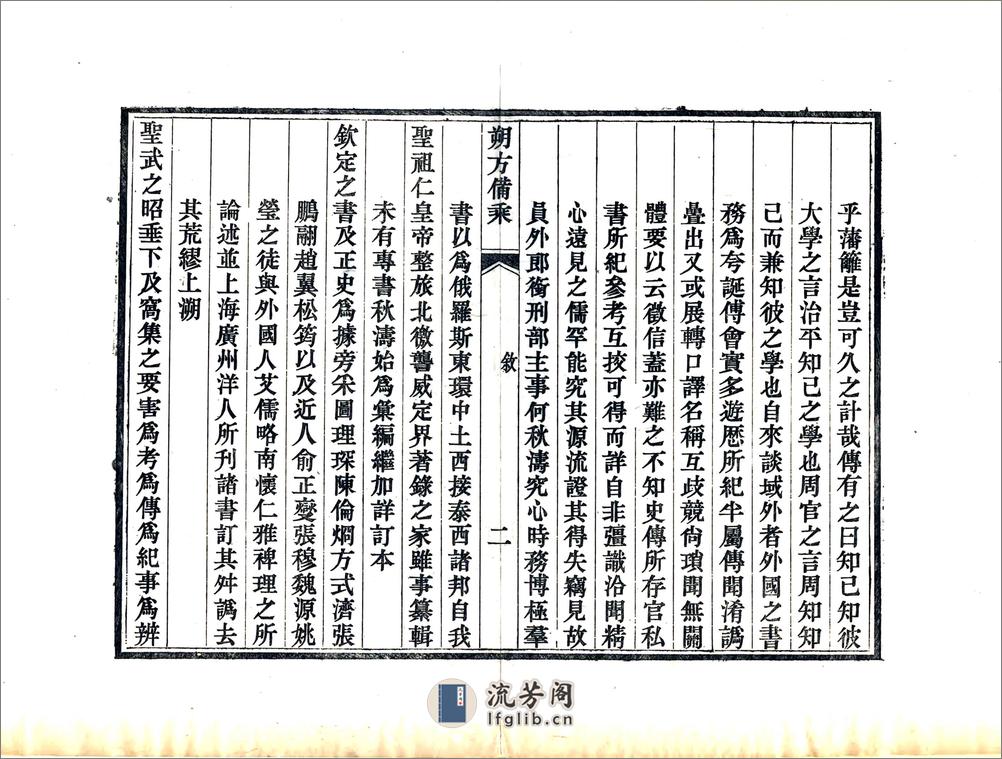 乎藩籬是豈可久之計哉傳有之曰知己知彼
大學之言治平知己之學也周官之言周知知
己而兼知彼之學也自來談域外者外國之書
務爲夸誕傅會實多遊歷所紀半屬傳聞淆譌
疊出又或展轉口譯名稱互歧競尙瑣聞無關
體要以云徵信蓋亦難之不知史傳所存官私
書所紀參考互挍可得而詳自非彊識洽聞精
心遠見之儒罕能究其源流證其得失竊見故
員外郎銜刑部主事何秋濤究心時務博極羣
朔方備乘
敘
二
書以爲俄羅斯東環中土西接泰西諸邦自我
聖祖仁皇帝整旅北徼讋威定界著錄之家雖事纂輯
未有專書秋濤始爲彙編繼加詳訂本
欽定之書及正史爲據旁采圖理琛陳倫烱方式濟張
鵬翮趙翼松筠以及近人俞正燮張穆魏源姚
瑩之徒與外國人艾儒略南懷仁雅裨理之所
論述並上海廣州洋人所刊諸書訂其舛譌去
其荒繆上溯
聖武之昭垂下及窩集之要害爲考爲傳爲紀事爲辨
流芳阁
lfglib.cn